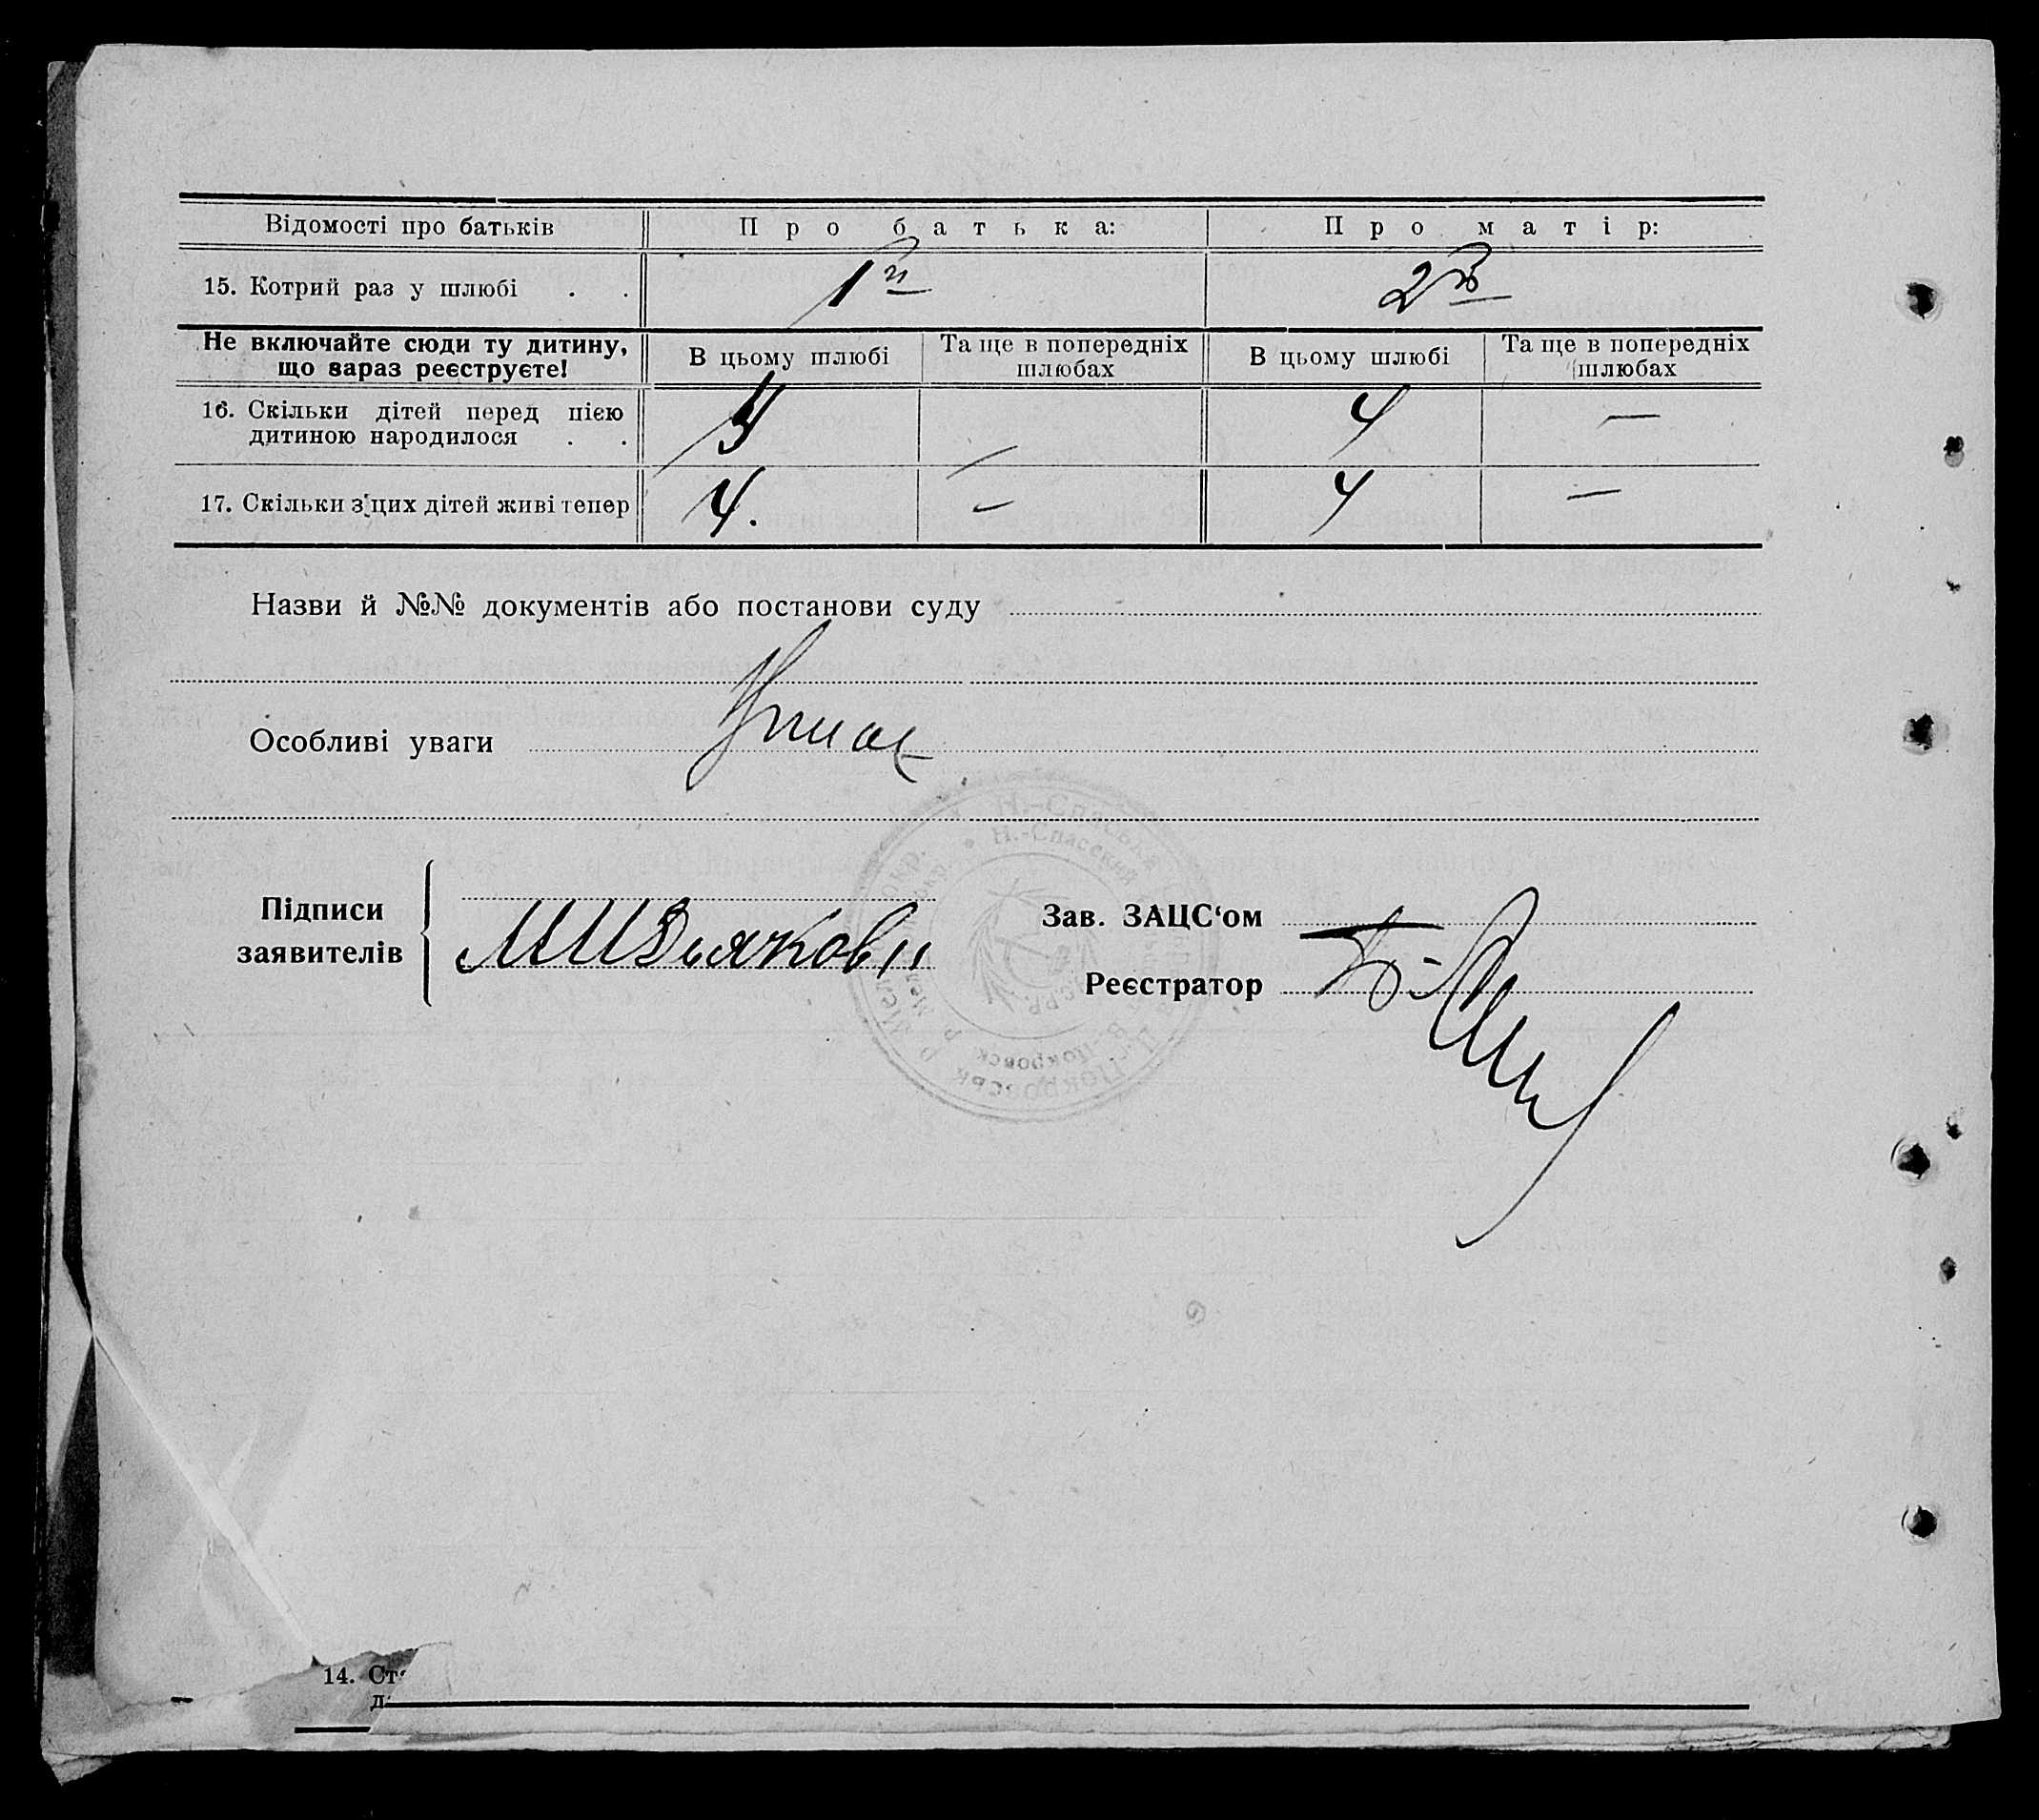 Відомості про батьків Про батька: Про матір:
15. Котрий раз у шлюбі . . 1й 2й
Не включайте сюди ту дитину, що вараз реєструєте! В цьому шлюбі Та ще в попередніх шлюбах В цьому шлюбі Та ще в попередніх шлюбах
16. Скільки дітей перед цією
дитиною народилося . . 4 —
17. Скільки з цих дітей живі тепер 4. — 4 —
Назви й №№ документів або постанови суду
Особливі уваги
Підписи
заявителів
Зав. ЗАЦС‘ом
Реєстратор
Н.-Спаська
Н.-Спасский
Покровськ
Покровск.
14.